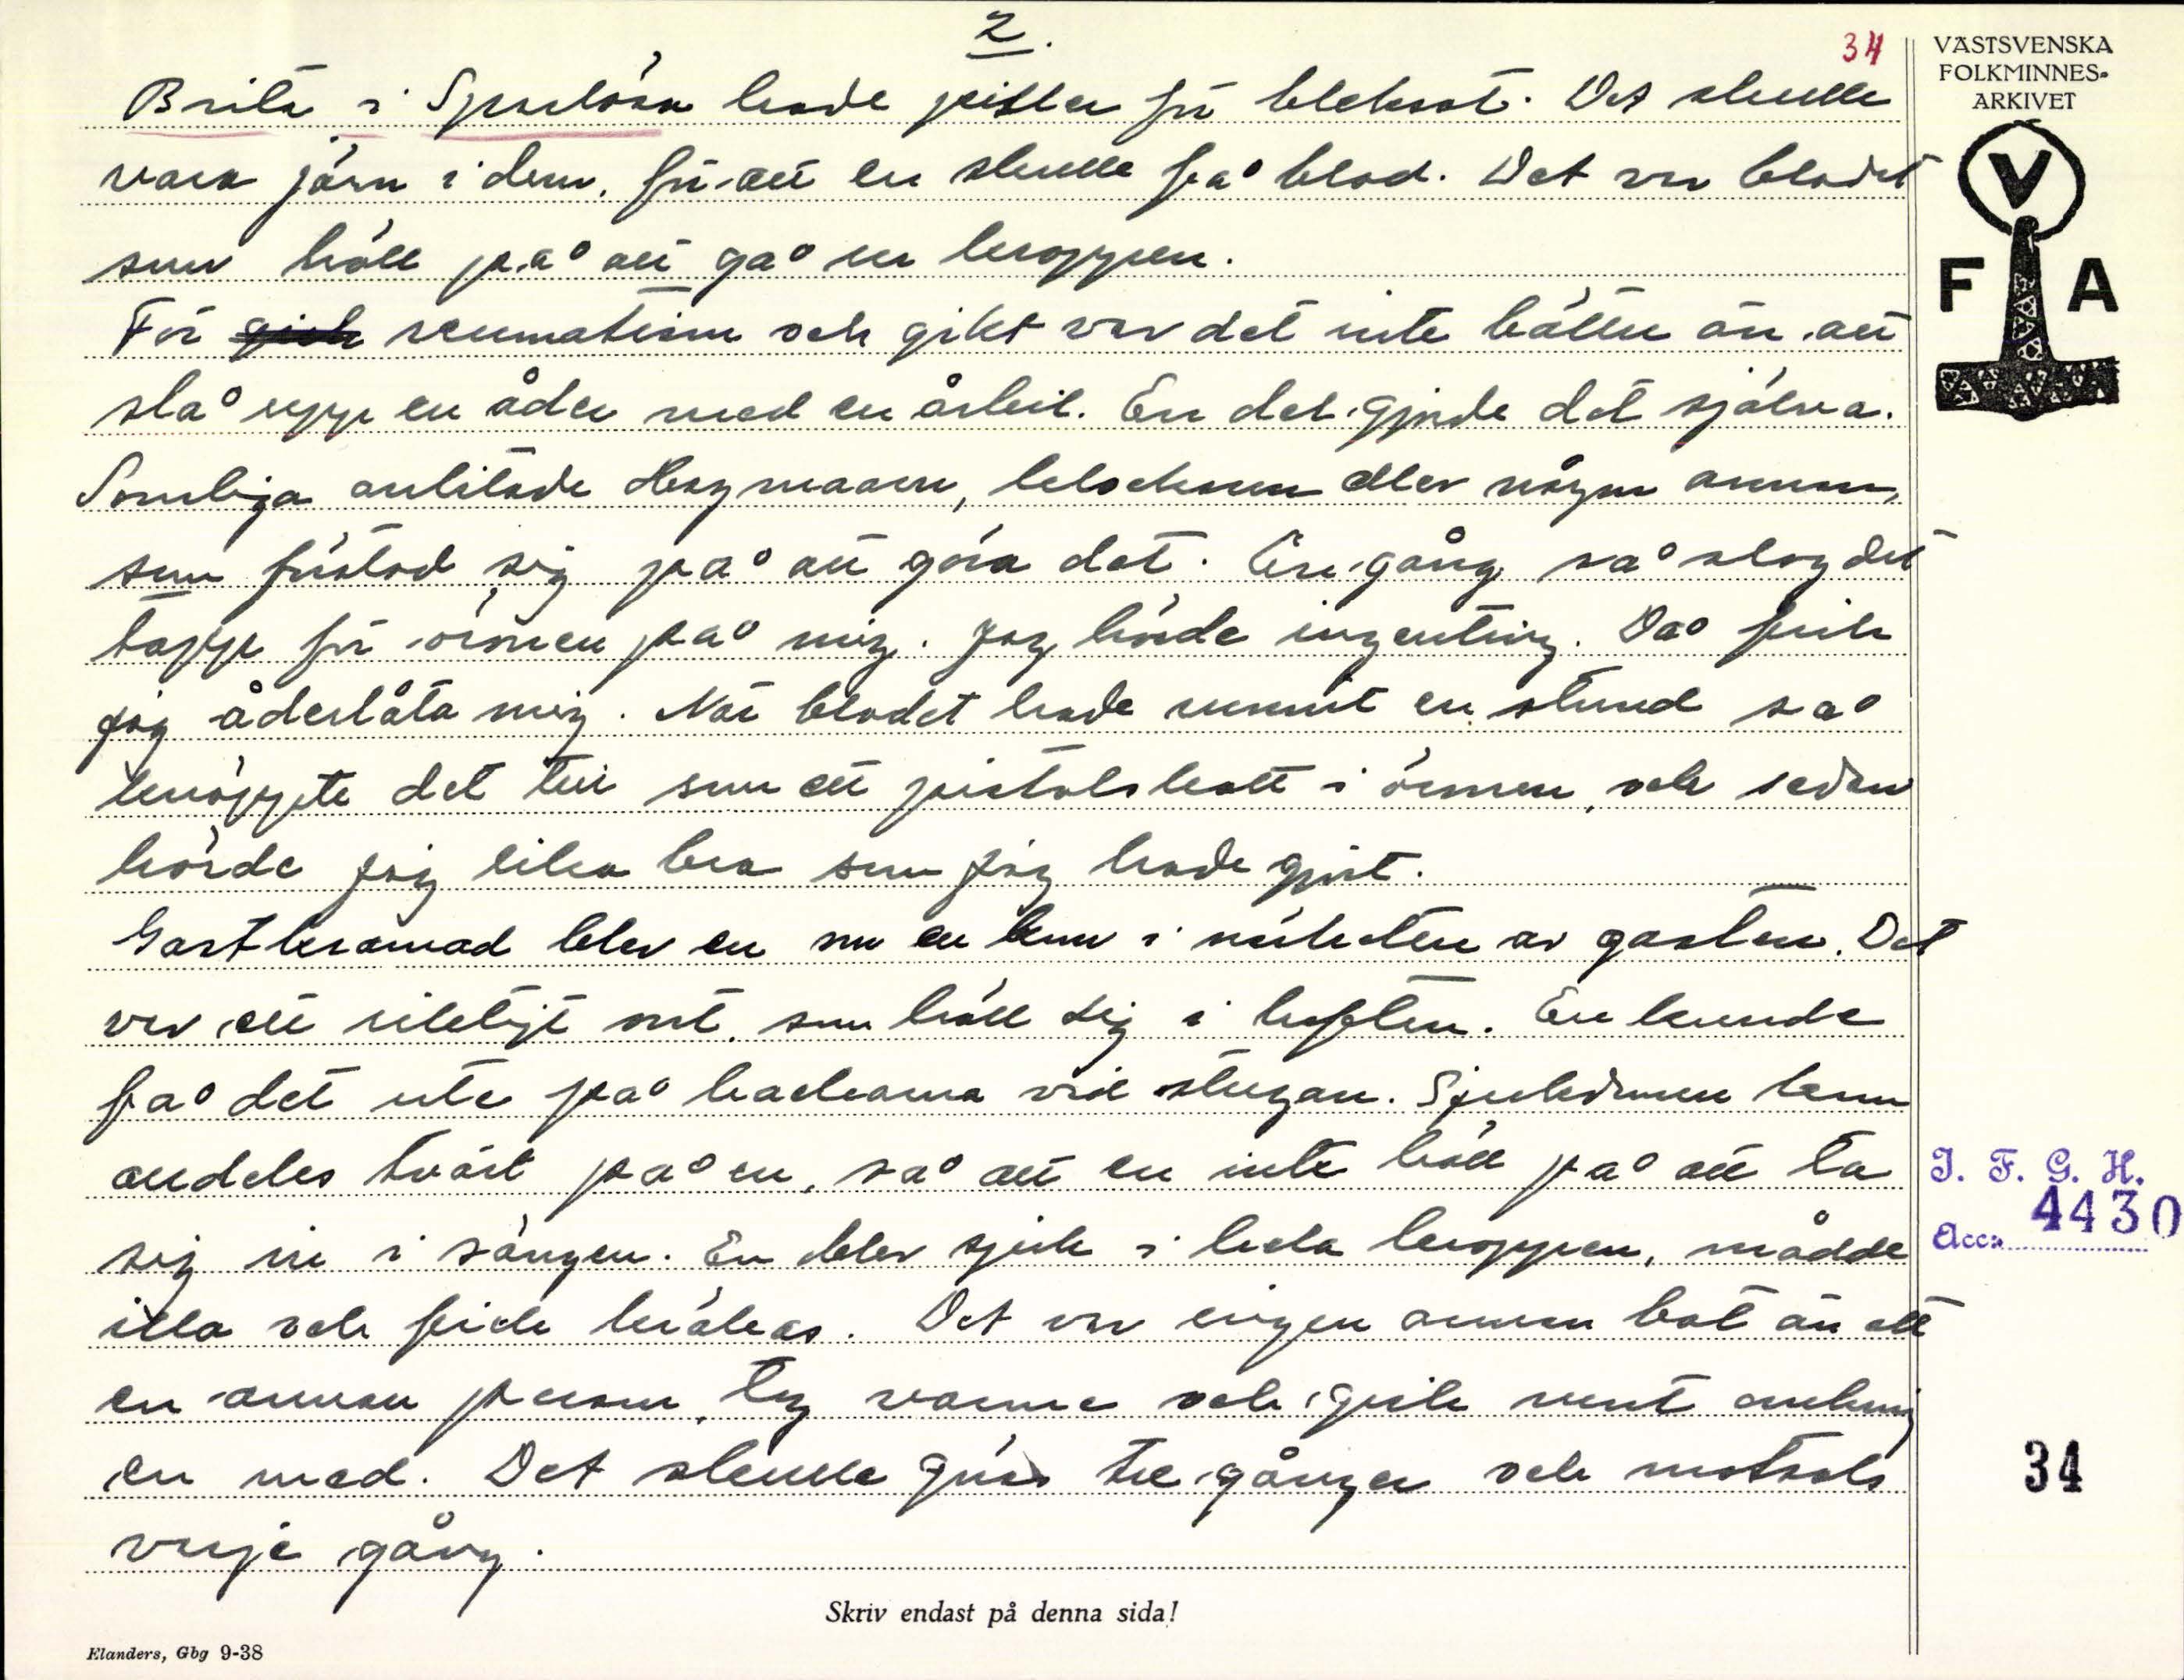 2.
34
VÄSTSVENSKA
FOLKMINNES-
ARKIVET
V
F A
Brita i Sparlösa hade piller för bleksot. Det skulle
vara järn i dem, för att en skulle få blod. Det var blodet
som höll på att gå ur kroppen.
För gick reumatism och gikt var det inte bättre än att
slå upp en åder med en årbil. En del gjorde det själva.
Somliga anlitade Hagmaan, klockaren eller någon annan,
som förstod sig på att göra det. En gång så slog det
lapp för öronen på mig. Jag hörde ingenting. Då fick
jag åderlåta mig. När blodet hade runnit en stund så
knäppte det till som ett pistolskott i öronen, och sedan
hörde jag lika bra som jag hade gjort.
Gastkramad blev en om en kom i närheten av gasten. Det
var ett riktigt ont, som höll sig i luften. En kunde
få det ute på backarna vid stugan. Sjukdomen kom
alldeles tvärt på en, så att en inte höll på att ta
sig in i sängen. En blev sjuk i hela kroppen, mådde
illa och fick kräkas. Det var ingen annan bot än att
en annan person tog varme och gick runt omkring
en med. Det skulle göras tre gånger och motsols
varje gång.
I. F. G. H.
Acc: 4430
34
Skriv endast på denna sida!
Elanders, Gbg 9-38